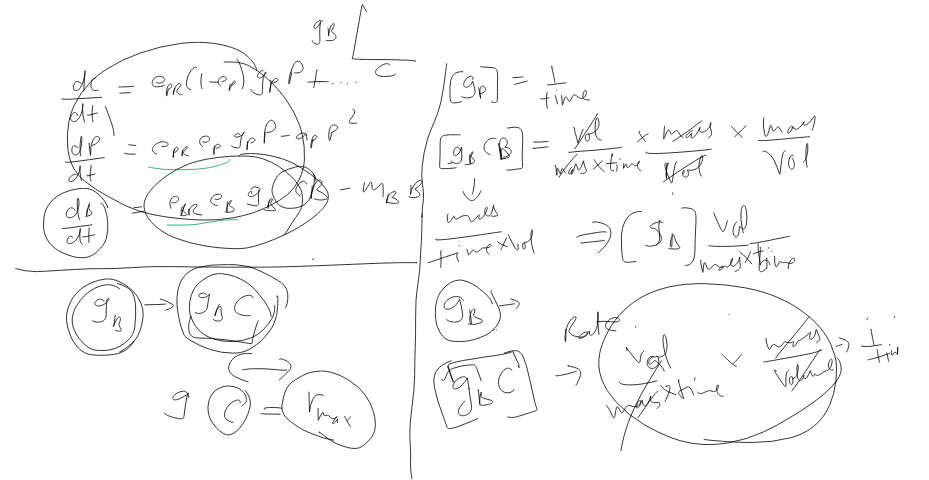 g_B
C
dC/dt = e_PR (1-e_P) g_P P + ....
dP/dt = e_PR e_P g_P P - a_P P^2
dB/dt = e_BR e_B g_B CB - m_B B
g_B → g_B C
g C = r_max
[g_P] = 1/time
[g_B CB] = Vol/mass×time × mass/Vol × mass/Vol
↓
mass/time×vol ⇒ [g_B] vol/mass×time
g_B →
Rate
[g_B C] → vol/mass×time × mass/Volume → 1/tim